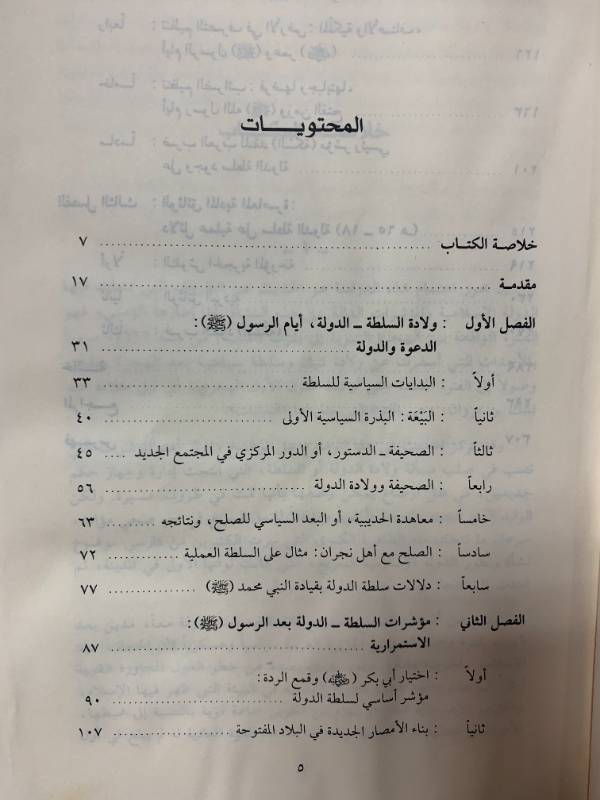 المحتويات
خلاصة الكتاب ........ ٧
مقدمة ........ ١٧
الفصل الأول : ولادة السلطة ــ الدولة، أيام الرسول (ﷺ):
الدعوة والدولة ........ ٣١
أولاً : البدايات السياسية للسلطة ........ ٣٣
ثانياً : البَيْعَة: البذرة السياسية الأولى ........ ٤٠
ثالثاً : الصحيفة ــ الدستور، أو الدور المركزي في المجتمع الجديد ..... ٤٥
رابعاً : الصحيفة وولادة الدولة ........ ٥٦
خامساً : معاهدة الحديبية، أو البعد السياسي للصلح، ونتائجه ........ ٦٣
سادساً : الصلح مع أهل نجران: مثال على السلطة العملية ........ ٧٢
سابعاً : دلالات سلطة الدولة بقيادة النبي محمد (ﷺ) ........ ٧٧
الفصل الثاني : مؤشرات السلطة ــ الدولة بعد الرسول (ﷺ):
الاستمرارية ........ ٨٧
أولاً : اختيار أبي بكر (رضي الله عنه) وقمع الردة:
مؤشر أساسي لسلطة الدولة ........ ٩٠
ثانياً : بناء الأمصار الجديدة في البلاد المفتوحة ........ ١٠٧
٥